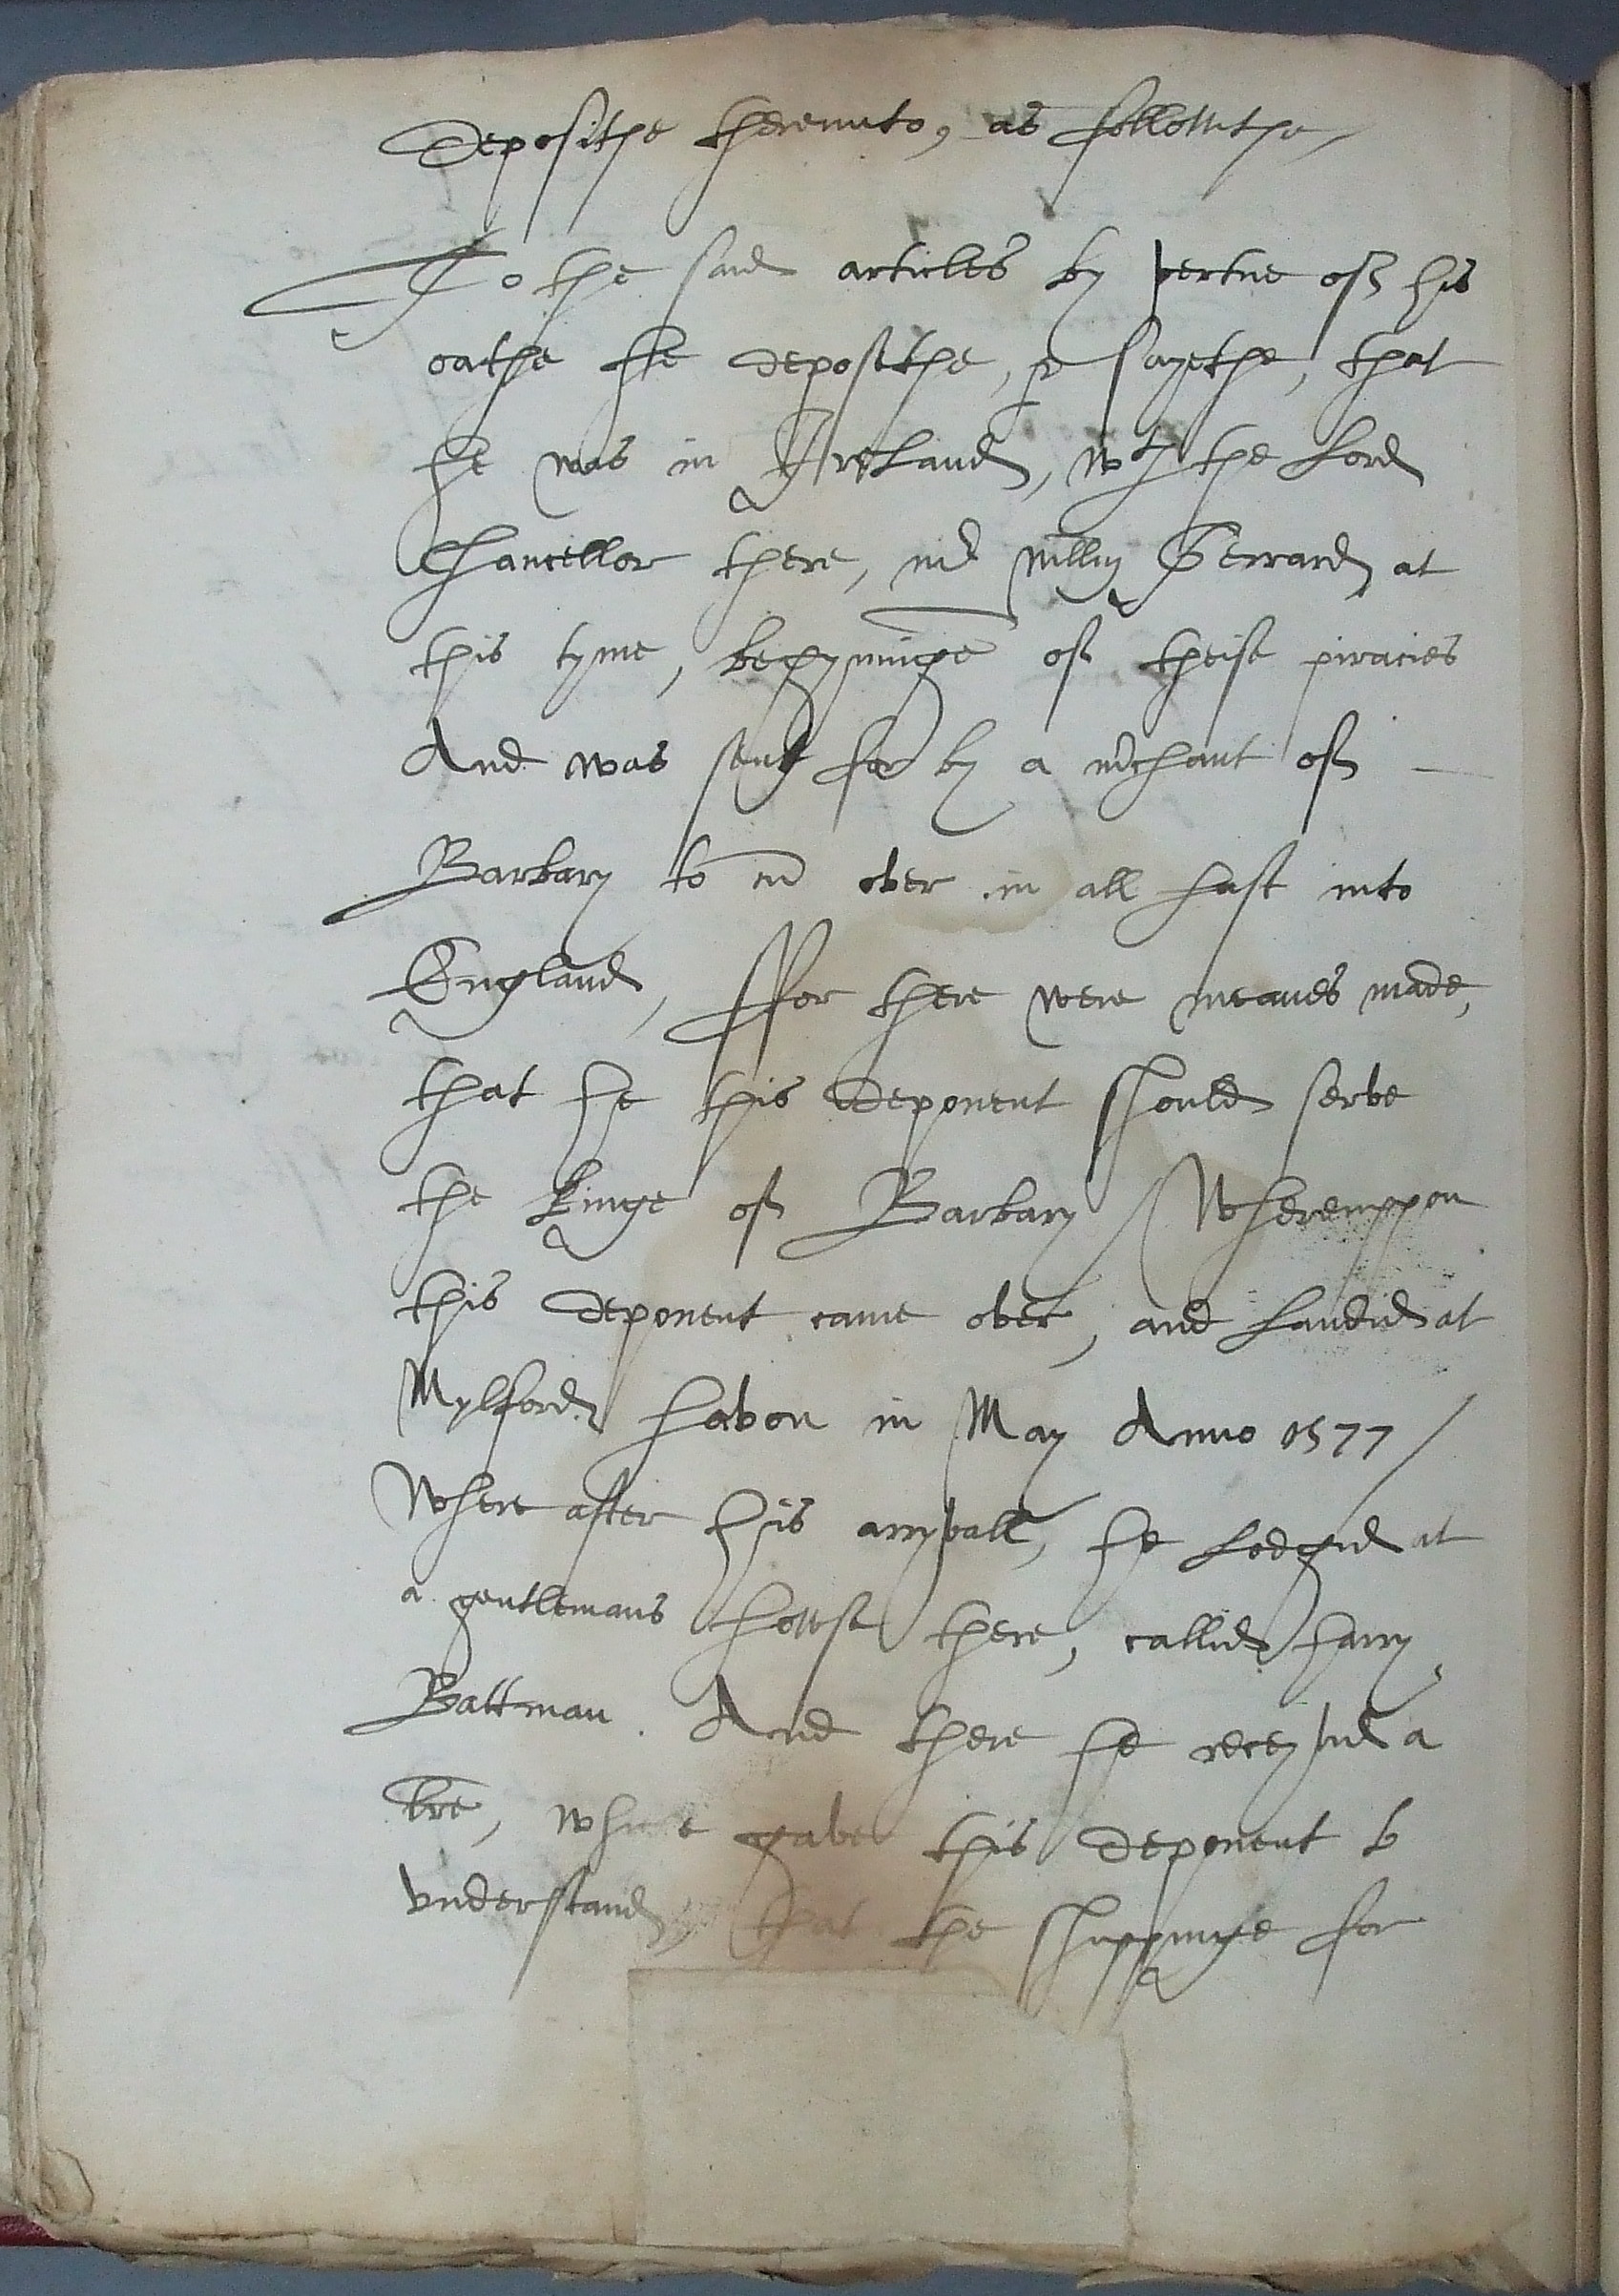 Deposithe therunto, as followithe
To the said articles by vertue off his
oathe He deposethe, & sayethe, that
he was in Ireland, wth the Lord
Chancellor there, mr willm Gerrard at
this tyme, begynninge off theise piracies
And was sent for by a mrchant off
Barbary to over in all hast into
England, ffor there were meanes made,
that he this Deponent should serve
the kinge off Barbary / Whereuppon
this Deponent came over, and Landid at
Mylford havon in May Anno 1577 /
Where after his arryvall, he Lodgid at
a gentlemans howse there, callid harry
Battman. And there he receyvid a
lre, whiche gave this deponent to
vnderstand, that the shippinge for